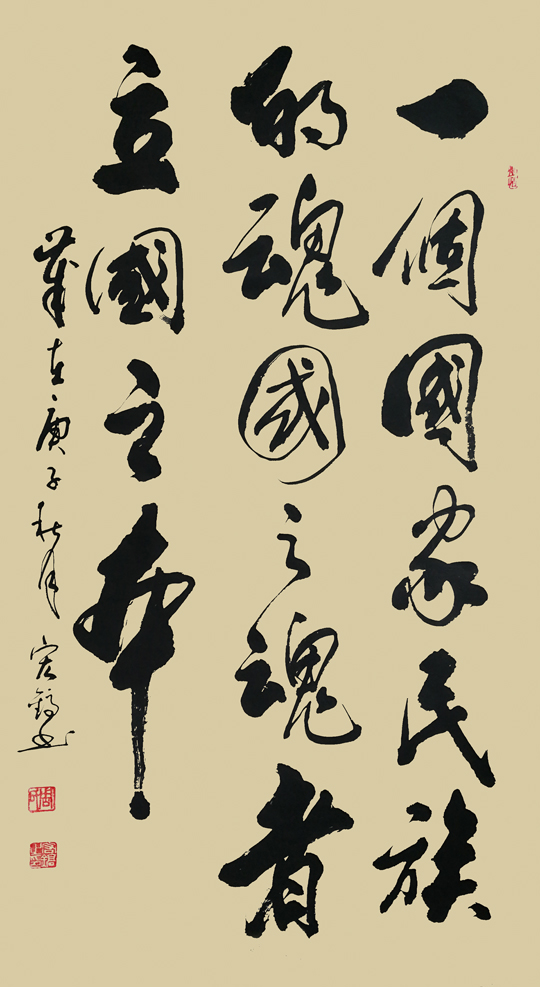 一個國家民族
的魂國之魂者
立國之本
歲在庚子秋月宏鎬書